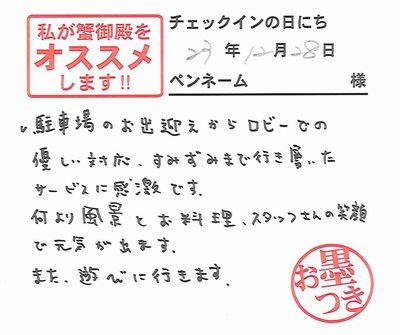 私が蟹御殿を
オススメ
します!!
チェックインの日にち
23年12月28日
ペンネーム 様
駐車場のお出迎えからロビーでの
優しい対応、すみずみまで行き届いた
サービスに感激です。
何より風景とお料理、スタッフさんの笑顔
で元気が出ます。
また、遊びに行きます。
お墨つき